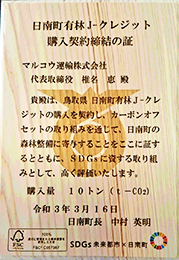 日南町有林J-クレジット
購入契約締結の証
マルコウ運輸株式会社
代表取締役 椎名 恵 殿
貴殿は、鳥取県 日南町有林J-クレ
ジットの購入を契約し、カーボンオフ
セットの取り組みを通じて、日南町の
森林整備に寄与することをここに証す
るとともに、SDGsに資する取り組
みとして、高く評価いたします。
購入量 10トン(t-CO2)
令和3年3月16日
日南町長 中村 英明
FSC
SDGs未来都市×日南町